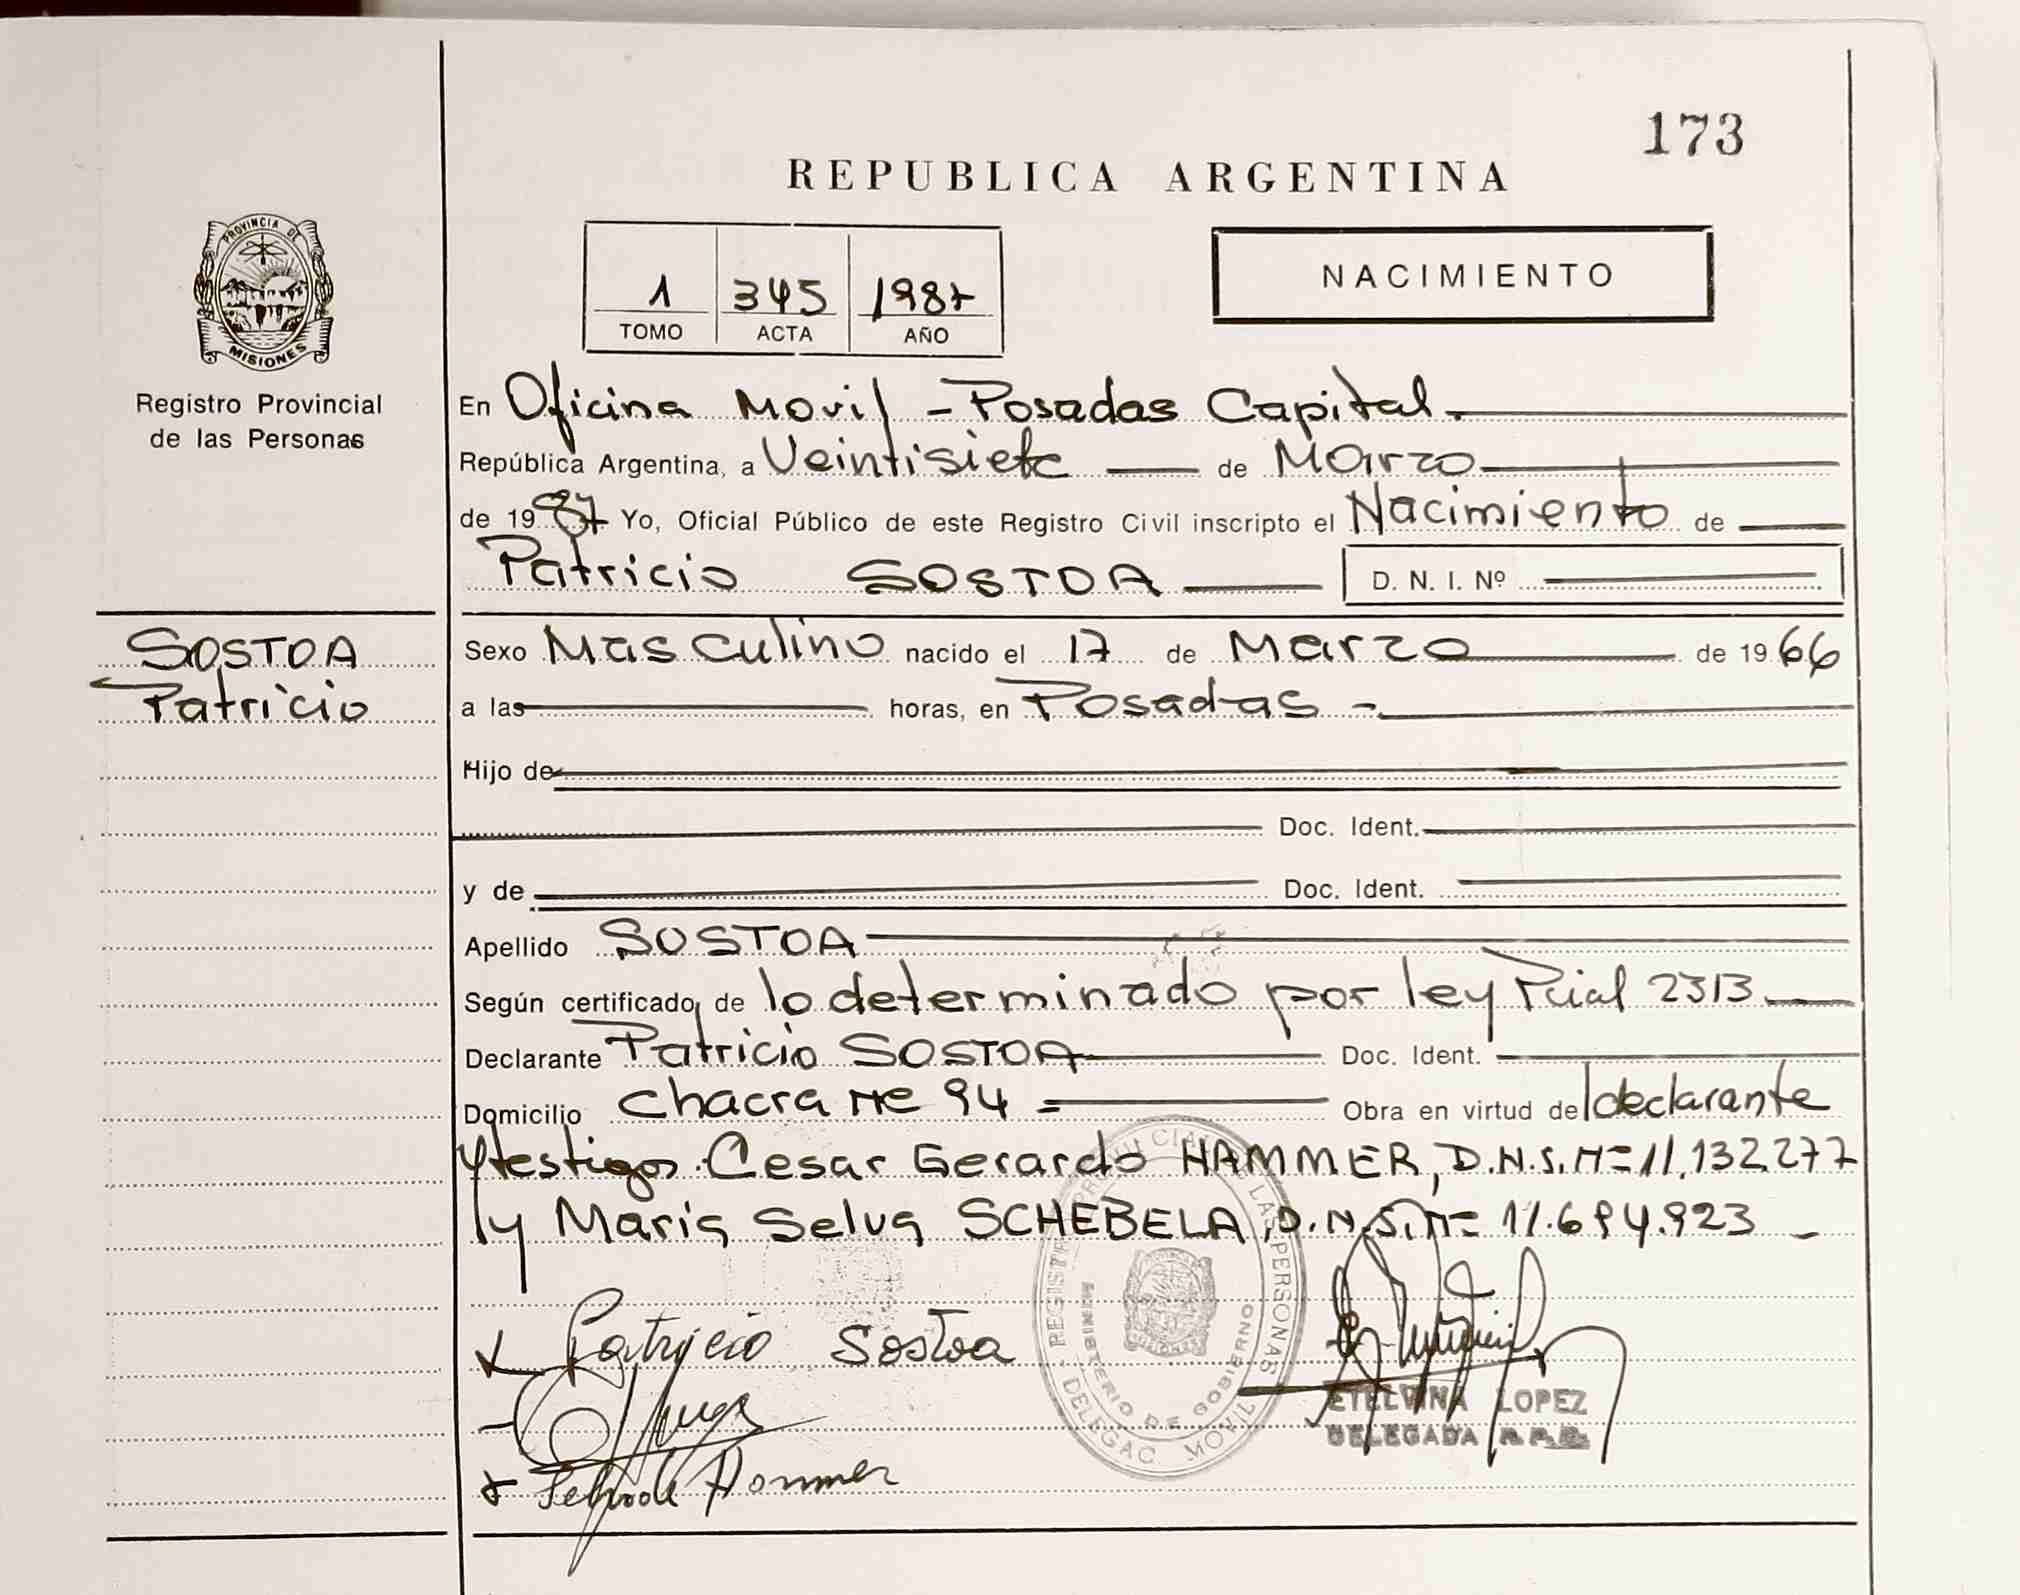 173
REPUBLICA ARGENTINA
PROVINCIA DE
MISIONES
Registro Provincial
de las Personas
1 345 1987
TOMO ACTA AÑO
NACIMIENTO
En Oficina Movil - Posadas Capital
República Argentina, a Veintisiete de Marzo
de 1987 Yo, Oficial Público de este Registro Civil inscripto el Nacimiento de
Patricio SOSTOA D. N. I. Nº
SOSTOA
Patricio
Sexo Masculino nacido el 17 de Marzo de 1966
a las horas, en Posadas -
Hijo de
Doc. Ident.
y de Doc. Ident.
Apellido SOSTOA
Según certificado de lo determinado por ley Pcial 2313
Declarante Patricio SOSTOA Doc. Ident.
Domicilio Chacra Nº 94 = Obra en virtud de declarante
y testigos: Cesar Gerardo HAMMER, D.N.I. Nº 11.132.277
y Maria Selva SCHEBELA, D.N.I. Nº 11.694.923
Patricio Sostoa
REGISTRO PROVINCIAL DE LAS PERSONAS
MINISTERIO DE GOBIERNO
DELEGAC. MOVIL
ETELVINA LOPEZ
DELEGADA
Hammer